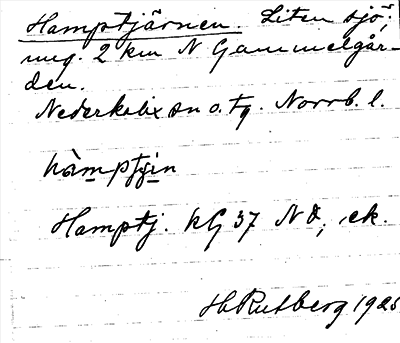 Hamptjärnen. Liten sjö,
ung. 2 km N Gammelgår-
den.
Nederkalix sn o. tg. Norrb. l.
hàmptjin
Hamptj. kG 37 NO, ek.
H Rutberg 1925